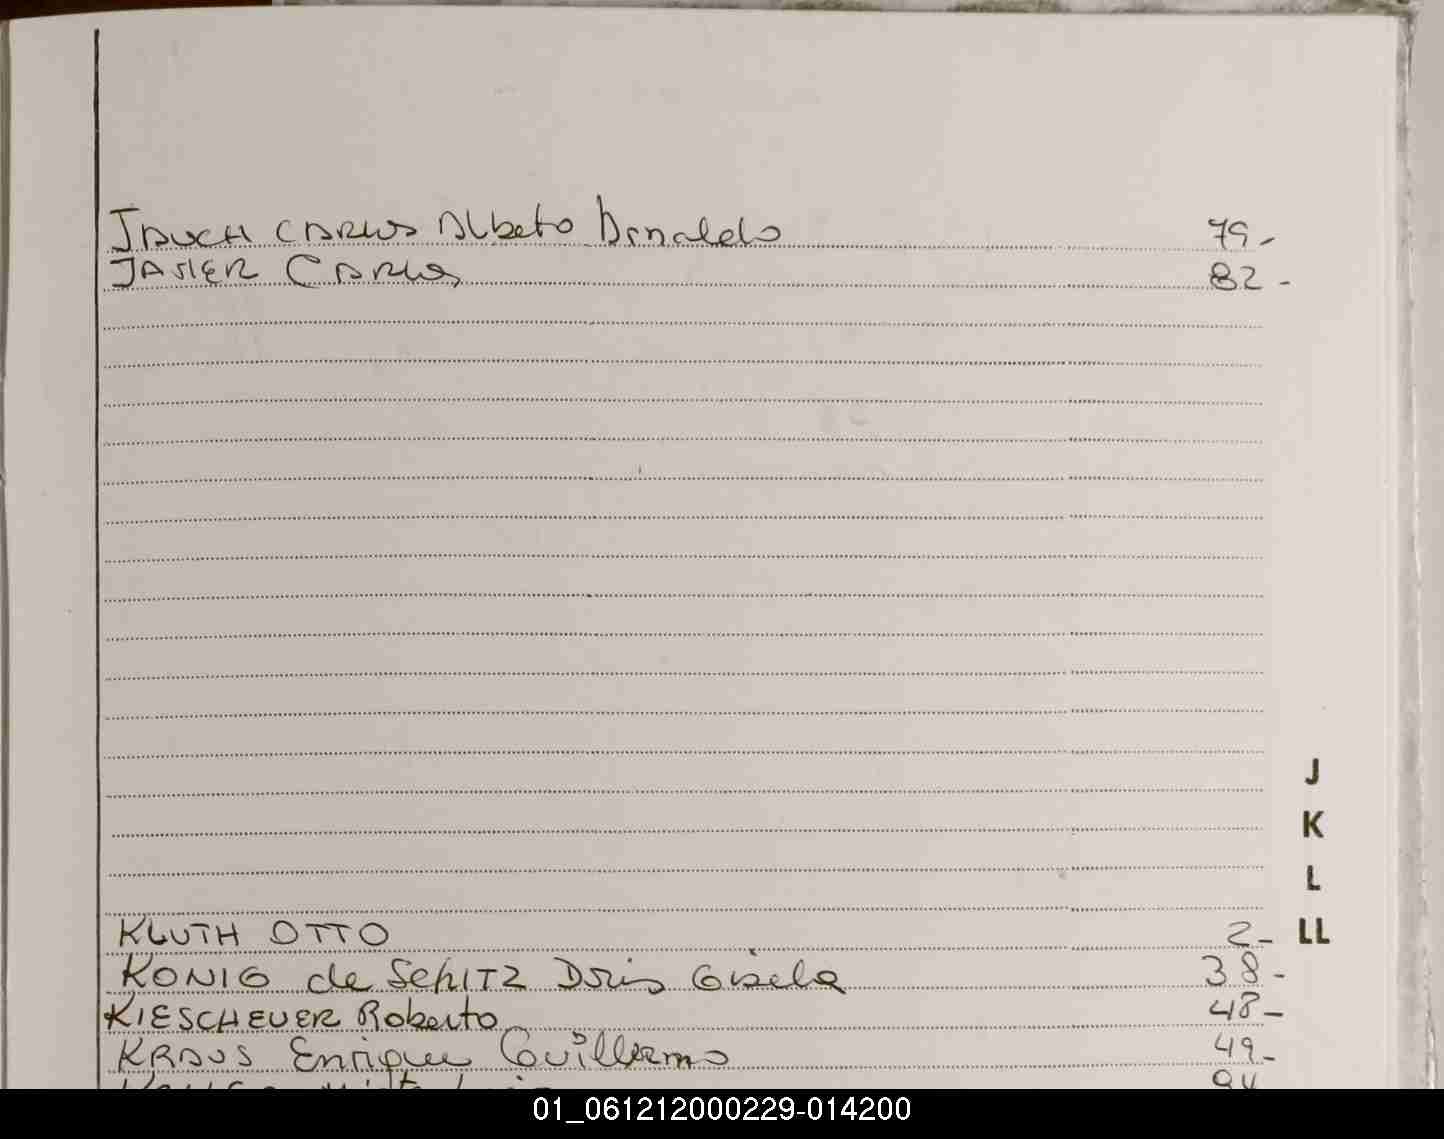 JAUCH CARLOS Alberto Arnaldo 79-
JASIER CARLOS 82-
J
K
L
LL
KLUTH OTTO 2-
KONIG de SCHITZ Doris Gisela 38-
KIESCHEUER Roberto 48-
KRAUS Enrique Guillermo 49-
01_061212000229-014200